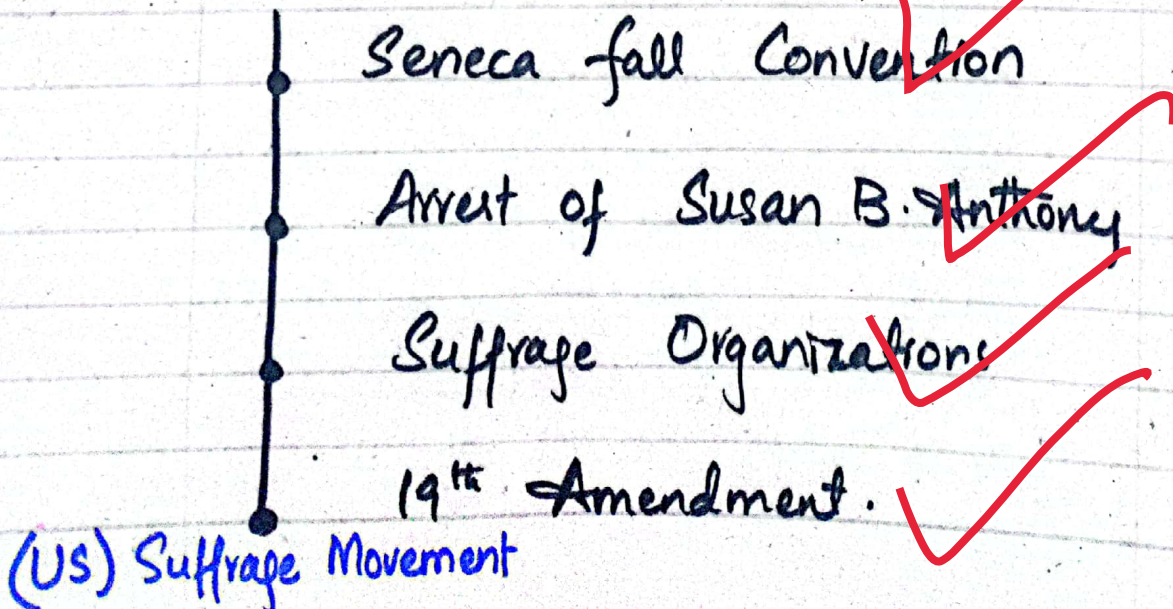 Seneca fall Convention
Arrest of Susan B. Anthony
Suffrage Organizations
19th Amendment.
(US) Suffrage Movement